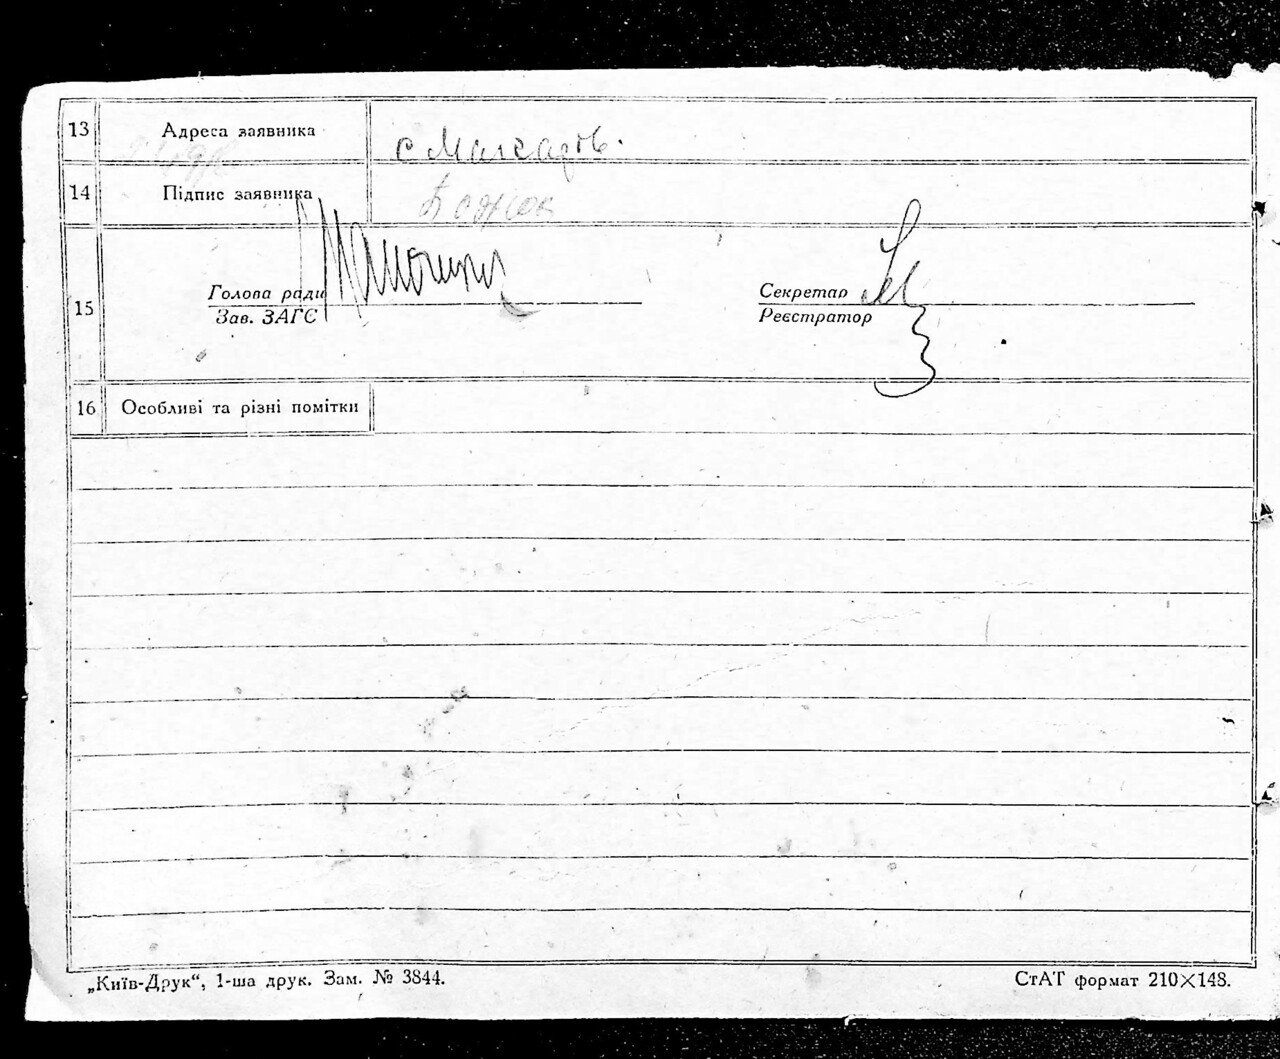 13 Адреса заявника с
14 Підпис заявника
15 Голова ради
Зав. ЗАГС
Секретар
Реєстратор
16 Особливі та різні помітки
„Київ-Друк“, 1-ша друк. Зам. № 3844.
СтАТ формат 210×148.